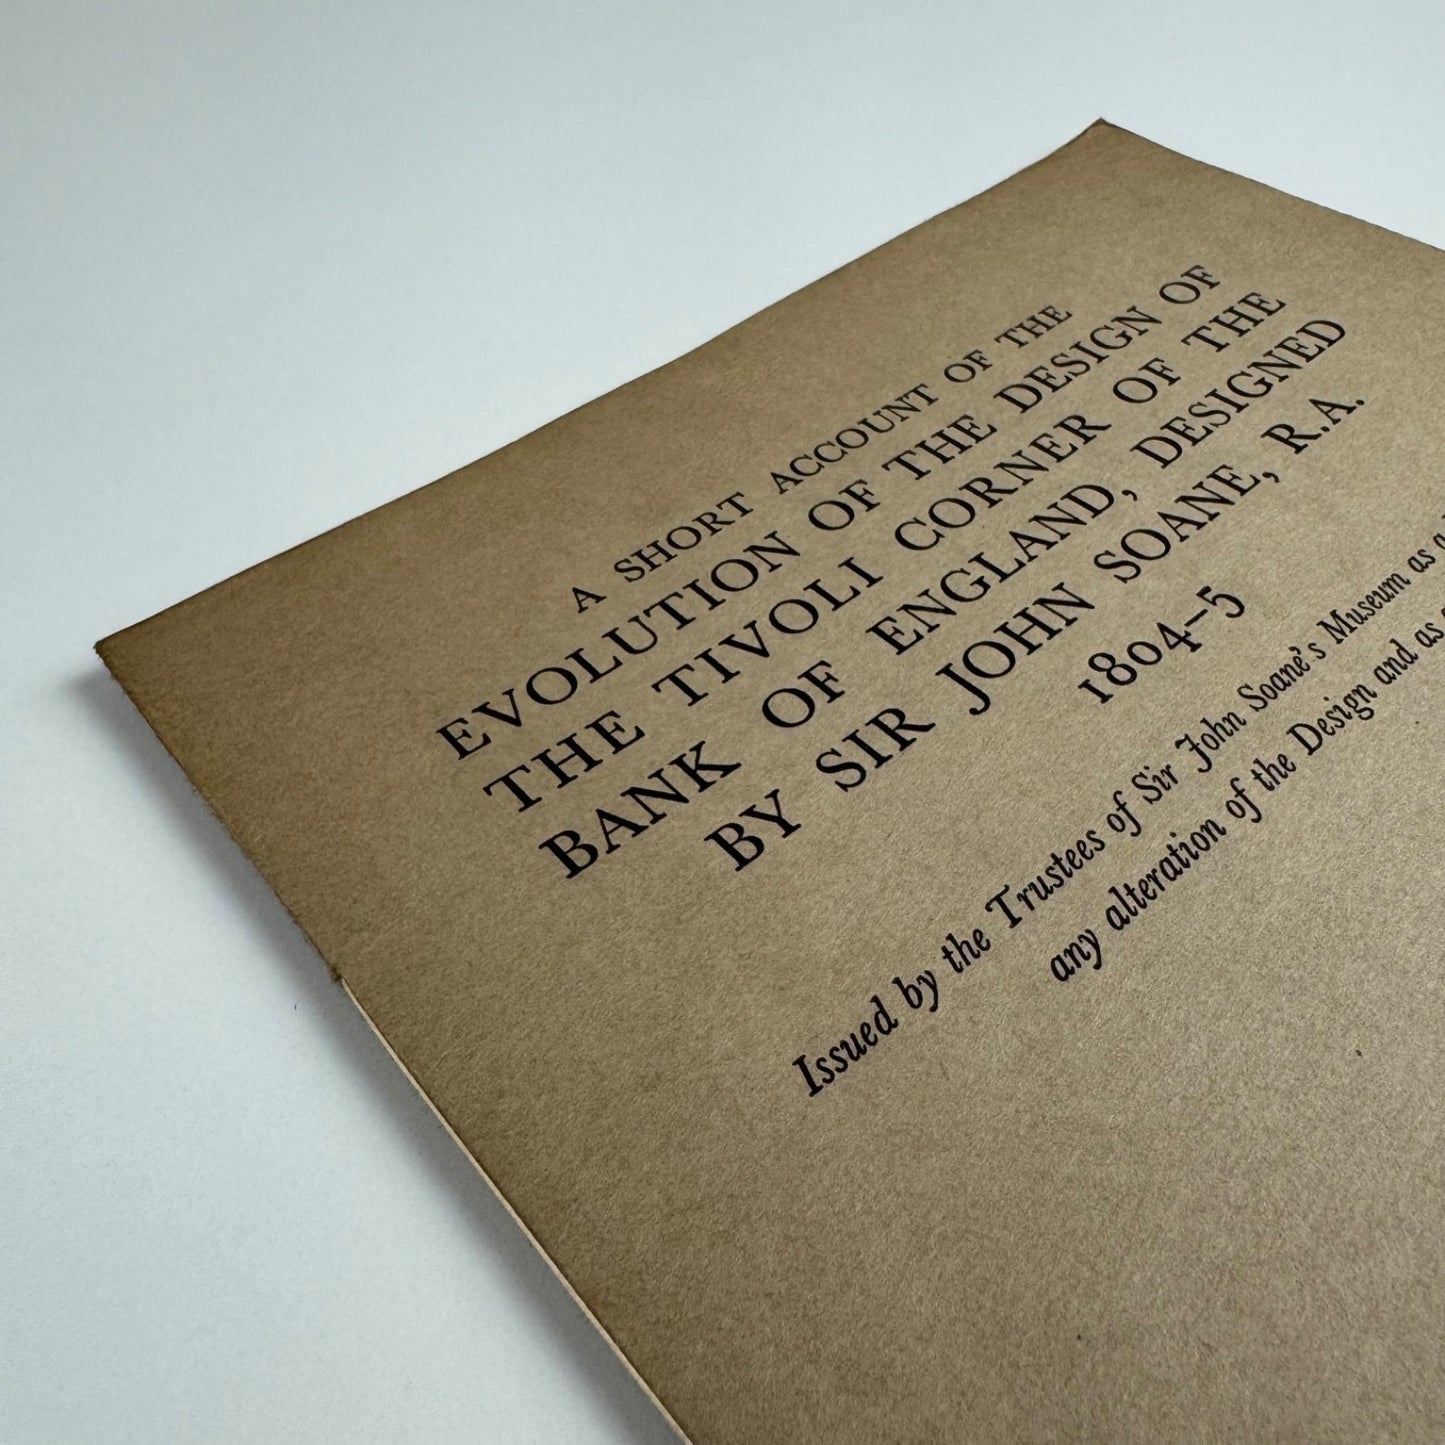 A SHORT ACCOUNT OF THE
EVOLUTION OF THE DESIGN OF
THE TIVOLI CORNER OF THE
BANK OF ENGLAND, DESIGNED
BY SIR JOHN SOANE, R.A.
1804–5
Issued by the Trustees of Sir John Soane's Museum as a
any alteration of the Design and as